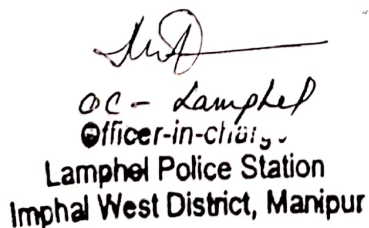 OC - Lamphel
Officer-in-charge
Lamphel Police Station
Imphal West District, Manipur